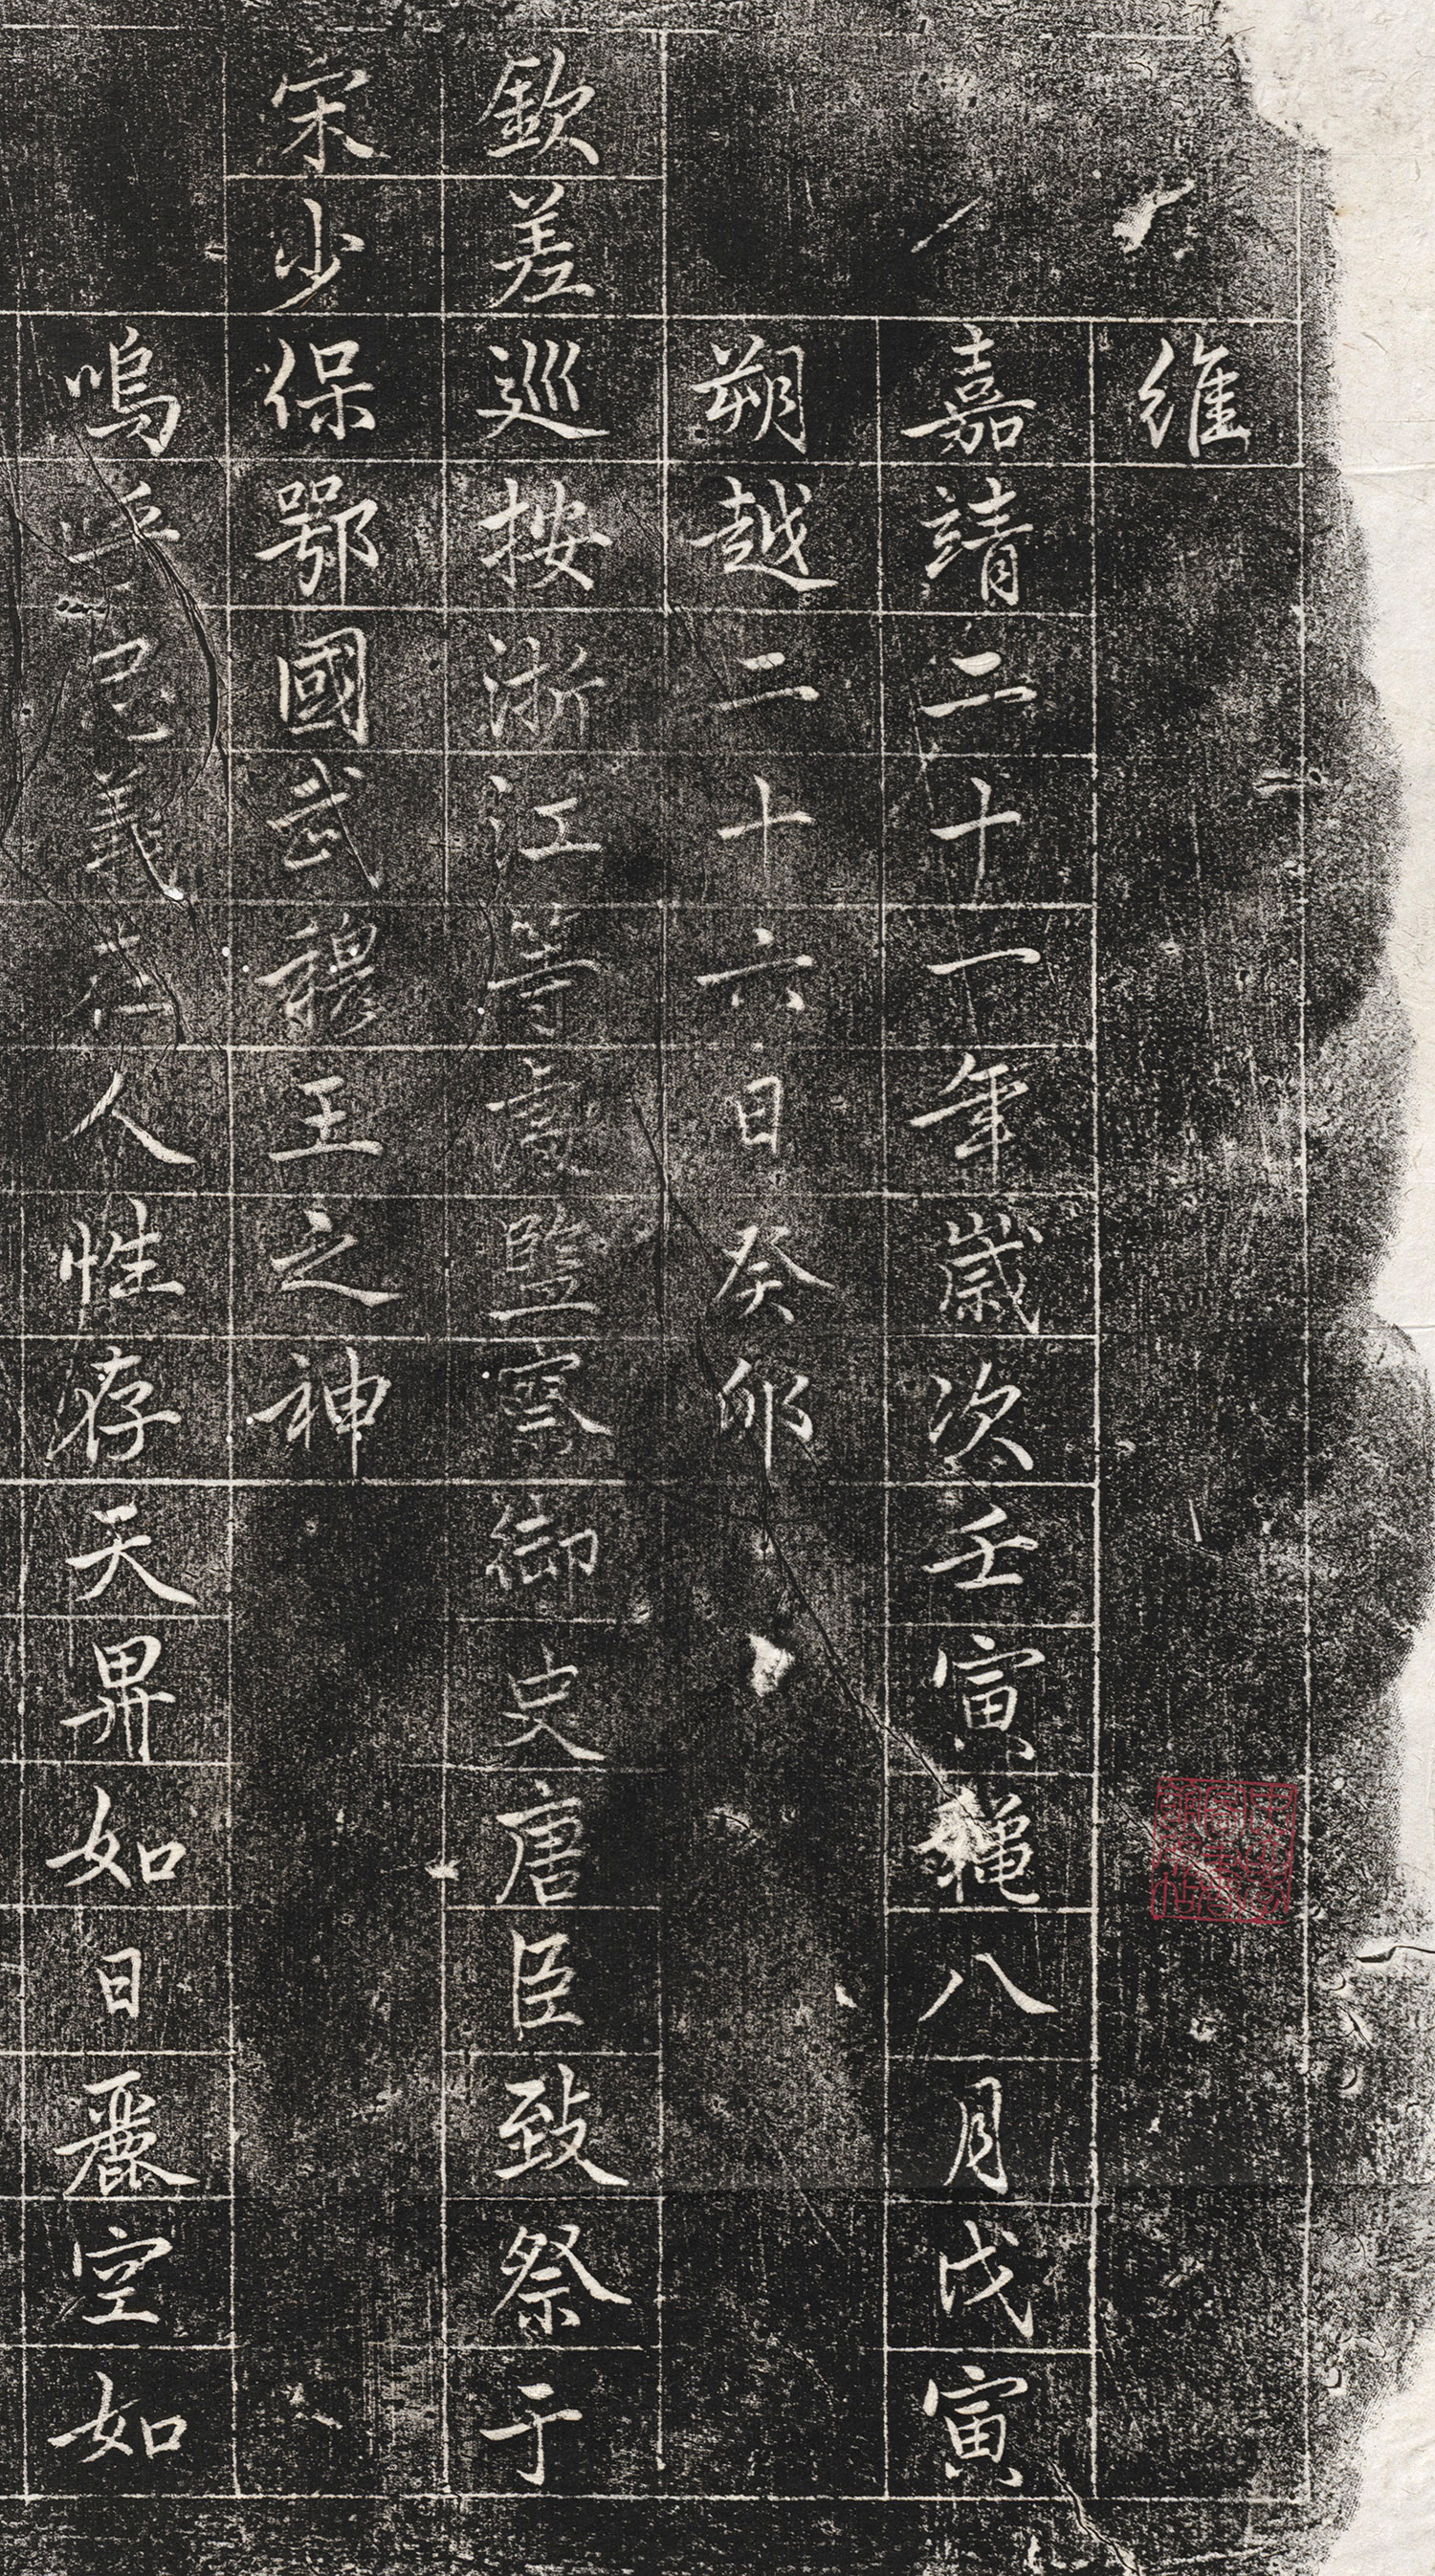 維
嘉靖二十一年歲次壬寅穐八月戊寅
朔越二十六日癸卯
欽差巡按浙江等處監察御史唐臣致祭于
宋少保鄂國武穆王之神
嗚乎忠義在人性存天畀如日麗空如